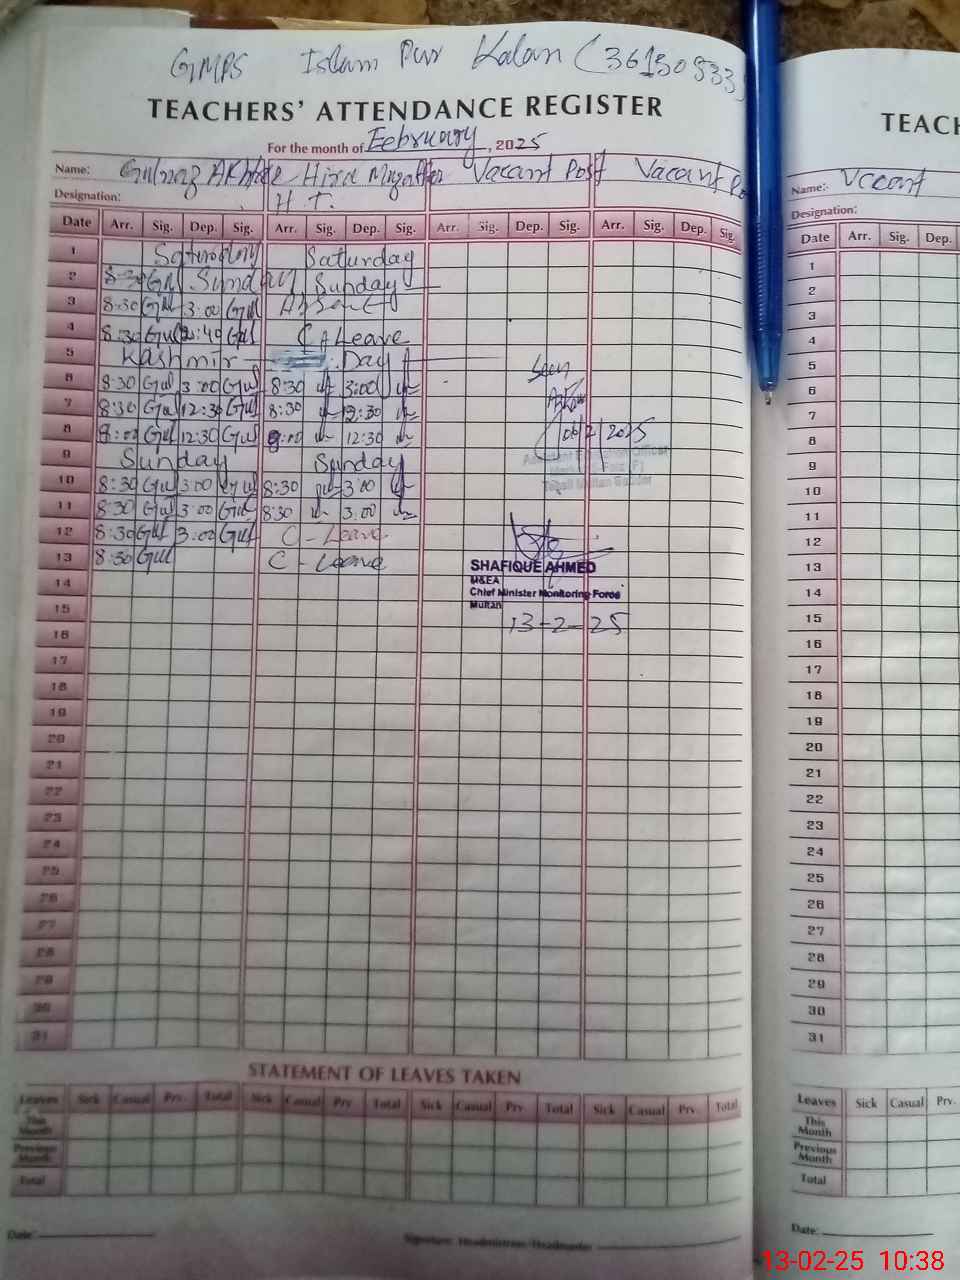 GMPS Islam Pur Kalan (361509333
TEACHERS' ATTENDANCE REGISTER
For the month of February, 2025
Name: Gulnaz Akhtar Hira Muzaffar Vacant Post Vacant Po
Designation: H.T.
Date Arr. Sig. Dep. Sig. Arr. Sig. Dep. Sig. Arr. Sig. Dep. Sig. Arr. Sig. Dep. Sig.
1 Saturday Saturday
2 8:30 Gul Sunday Sunday
3 8:30 Gul 3:00 Gul Absent
4 8:30 Gul 2:40 Gul C Leave
5 Kashmir Day
6 8:30 Gul 3:00 Gul 8:30 3:00
7 8:30 Gul 12:30 Gul 8:30 12:30
8 9:00 Gul 12:30 Gul 9:00 12:30
9 Sunday Sunday
10 8:30 Gul 3:00 Gul 8:30 3:00
11 8:30 Gul 3:00 Gul 8:30 3:00
12 8:30 Gul 3:00 Gul C - Leave
13 8:30 Gul C - Leave
14
15
16
17
18
19
20
21
22
23
24
25
26
27
28
29
30
31
Seen
06/2/2025
Assistant Education Officer
SHAFIQUE AHMED
M&EA
Chief Minister Monitoring Force
Multan
13-2-25
STATEMENT OF LEAVES TAKEN
Leaves Sick Casual Prv. Total Sick Casual Prv. Total Sick Casual Prv. Total Sick Casual Prv. Total
This Month
Previous Month
Total
Date: Signature: Headmistress/Headmaster
TEACH
Name: Vacant
Designation:
Date Arr. Sig. Dep.
1
2
3
4
5
6
7
8
9
10
11
12
13
14
15
16
17
18
19
20
21
22
23
24
25
26
27
28
29
30
31
Leaves Sick Casual Prv.
This Month
Previous Month
Total
Date:
13-02-25 10:38